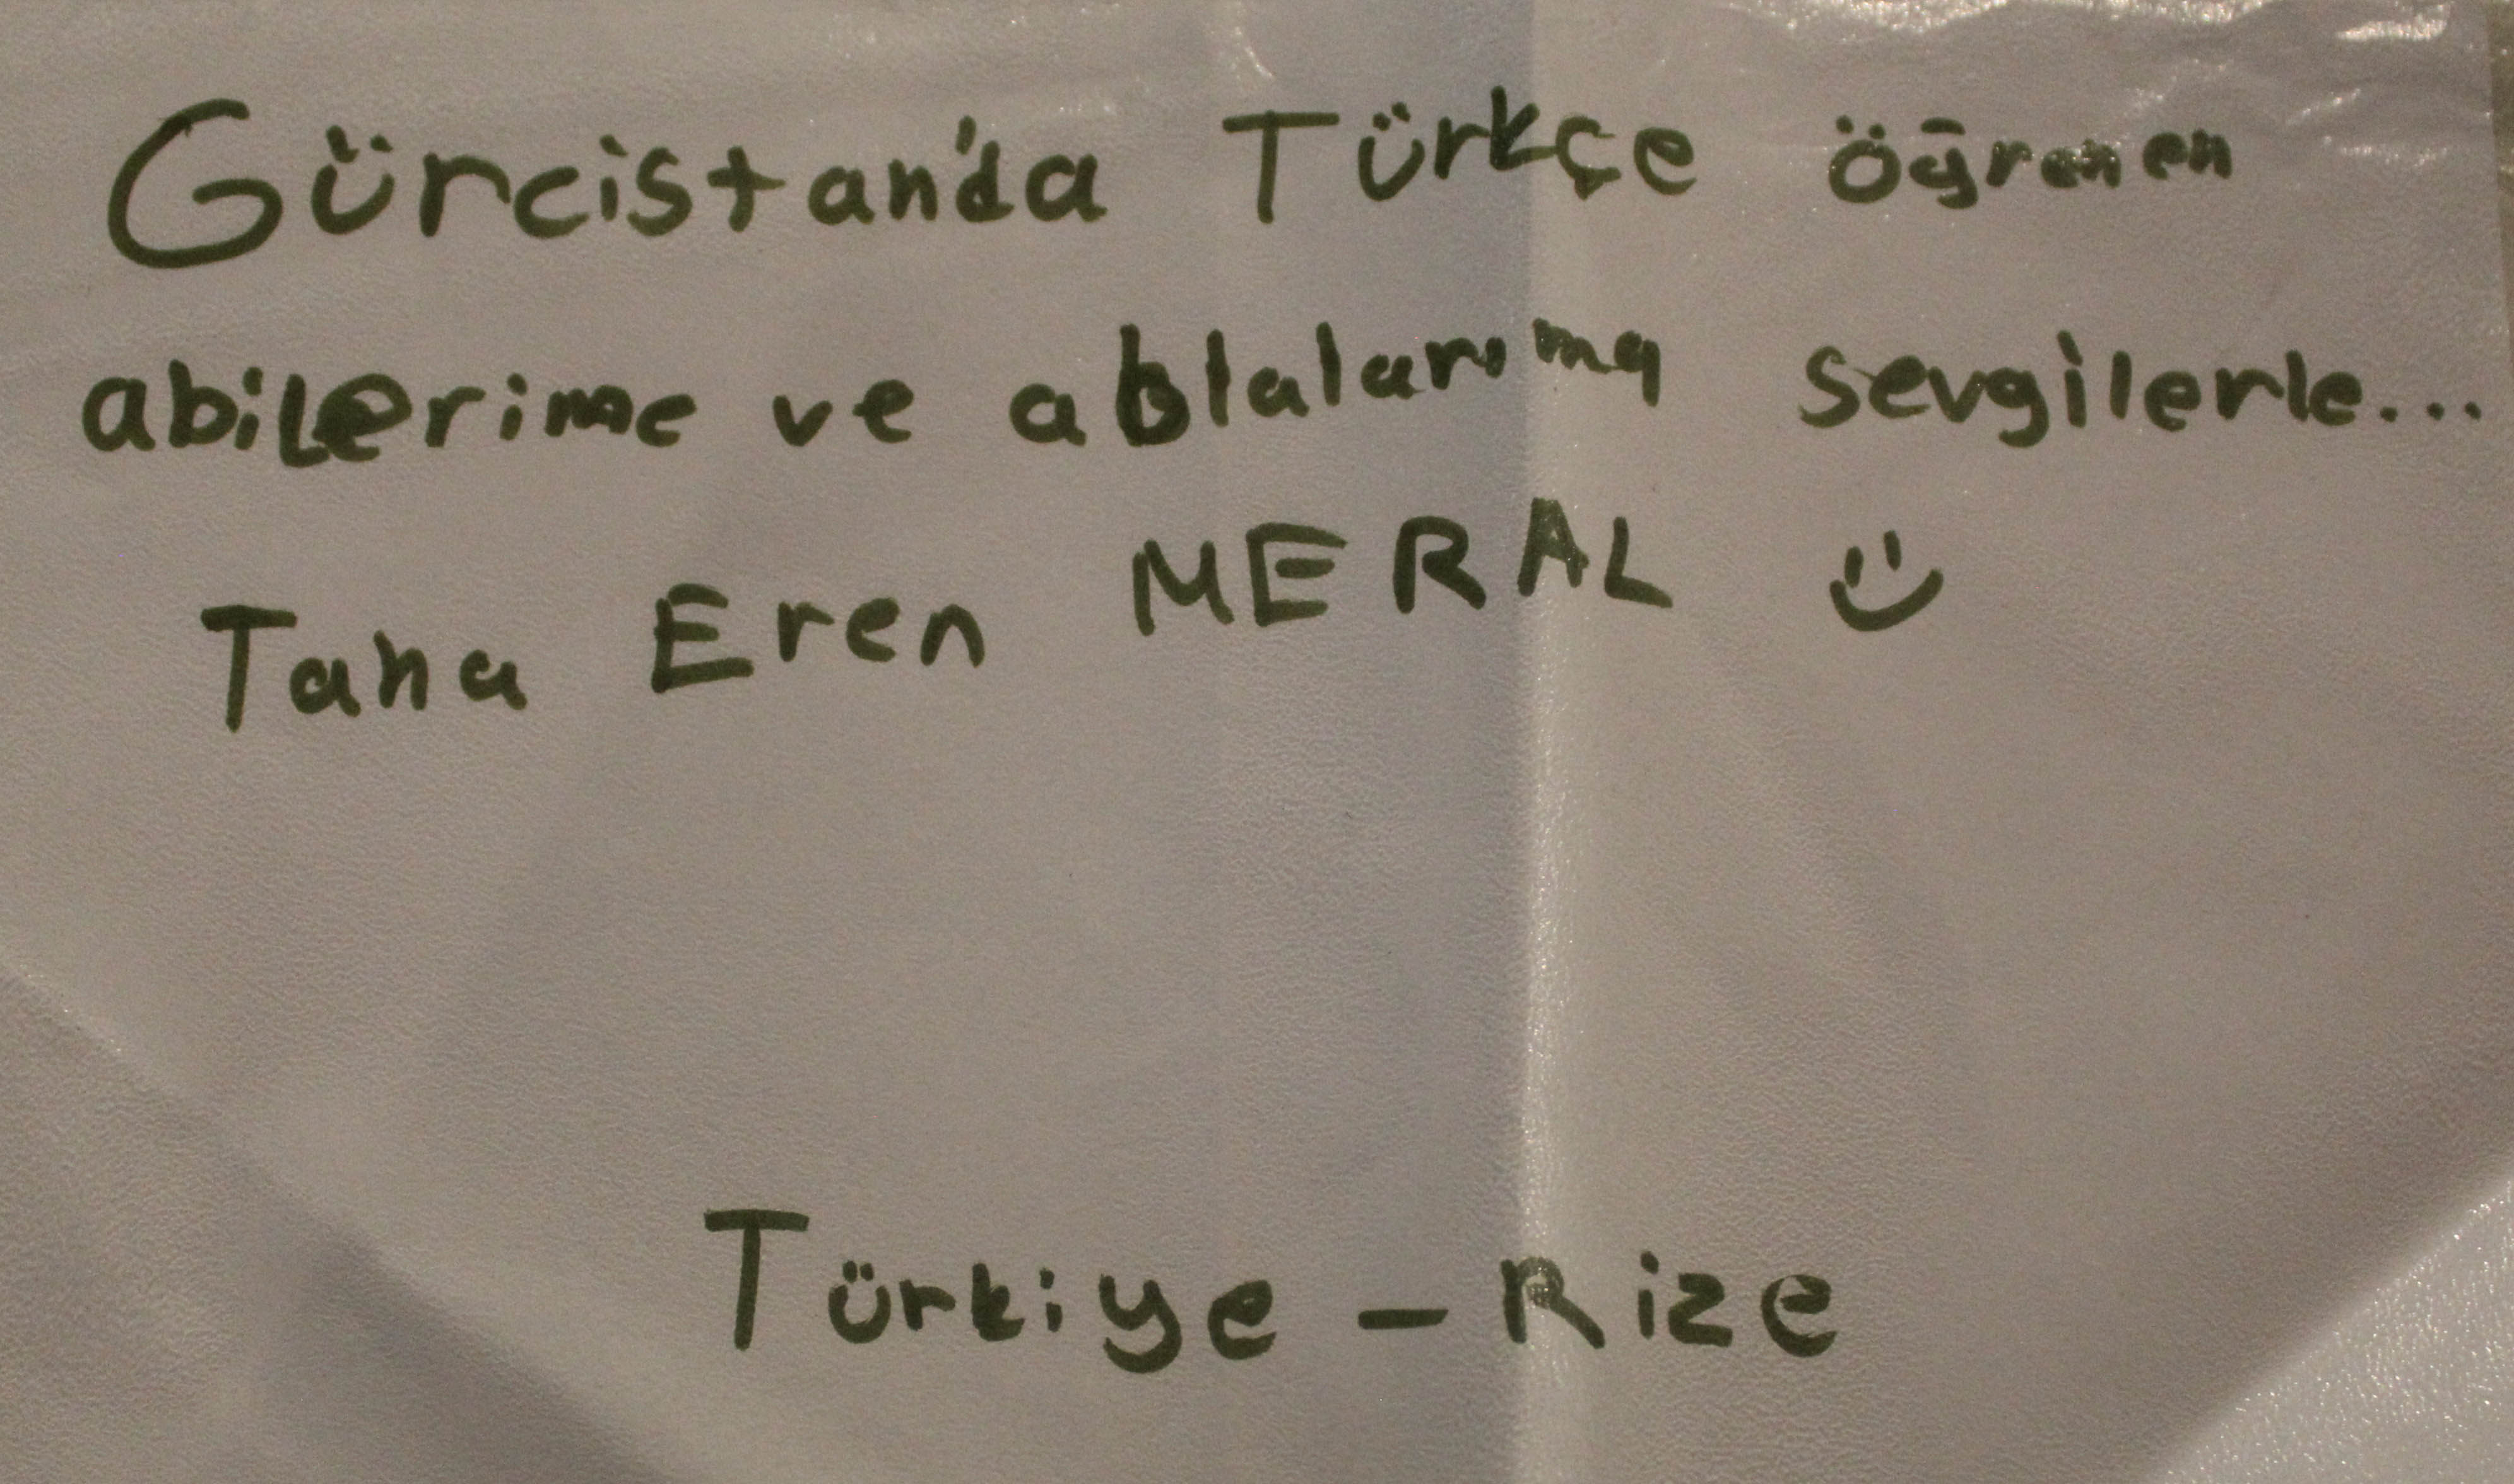 Gürcistan'da Türkçe öğrenen
abilerime ve ablalarıma sevgilerle...
Taha Eren MERAL
Türkiye - Rize